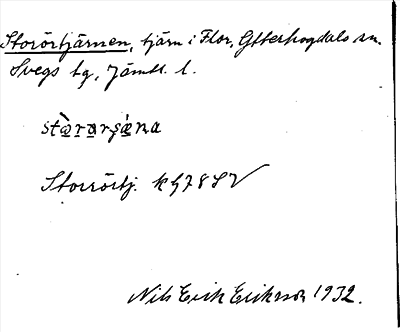 Storörtjärnen, tjärn i Flor, Ytterhogdals sn.
Svegs tg, Jämtl. l.
stæ̀rarʂǽna
Storrörtj. k G78SV
Nils Erik Eriksson 1932.